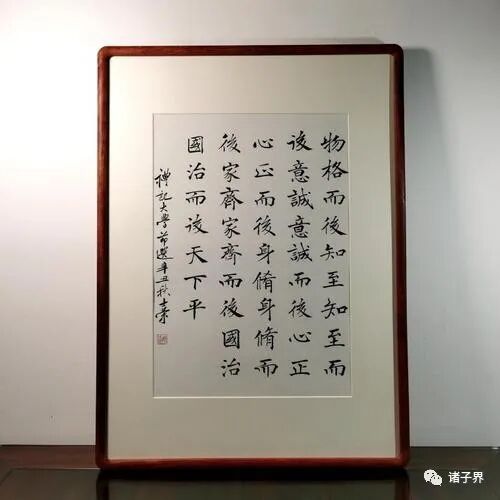 物格而後知至知至而
後意誠意誠而後心正
心正而後身脩身脩而
後家齊家齊而後國治
國治而後天下平
禮記大學節選辛丑秋
诸子界